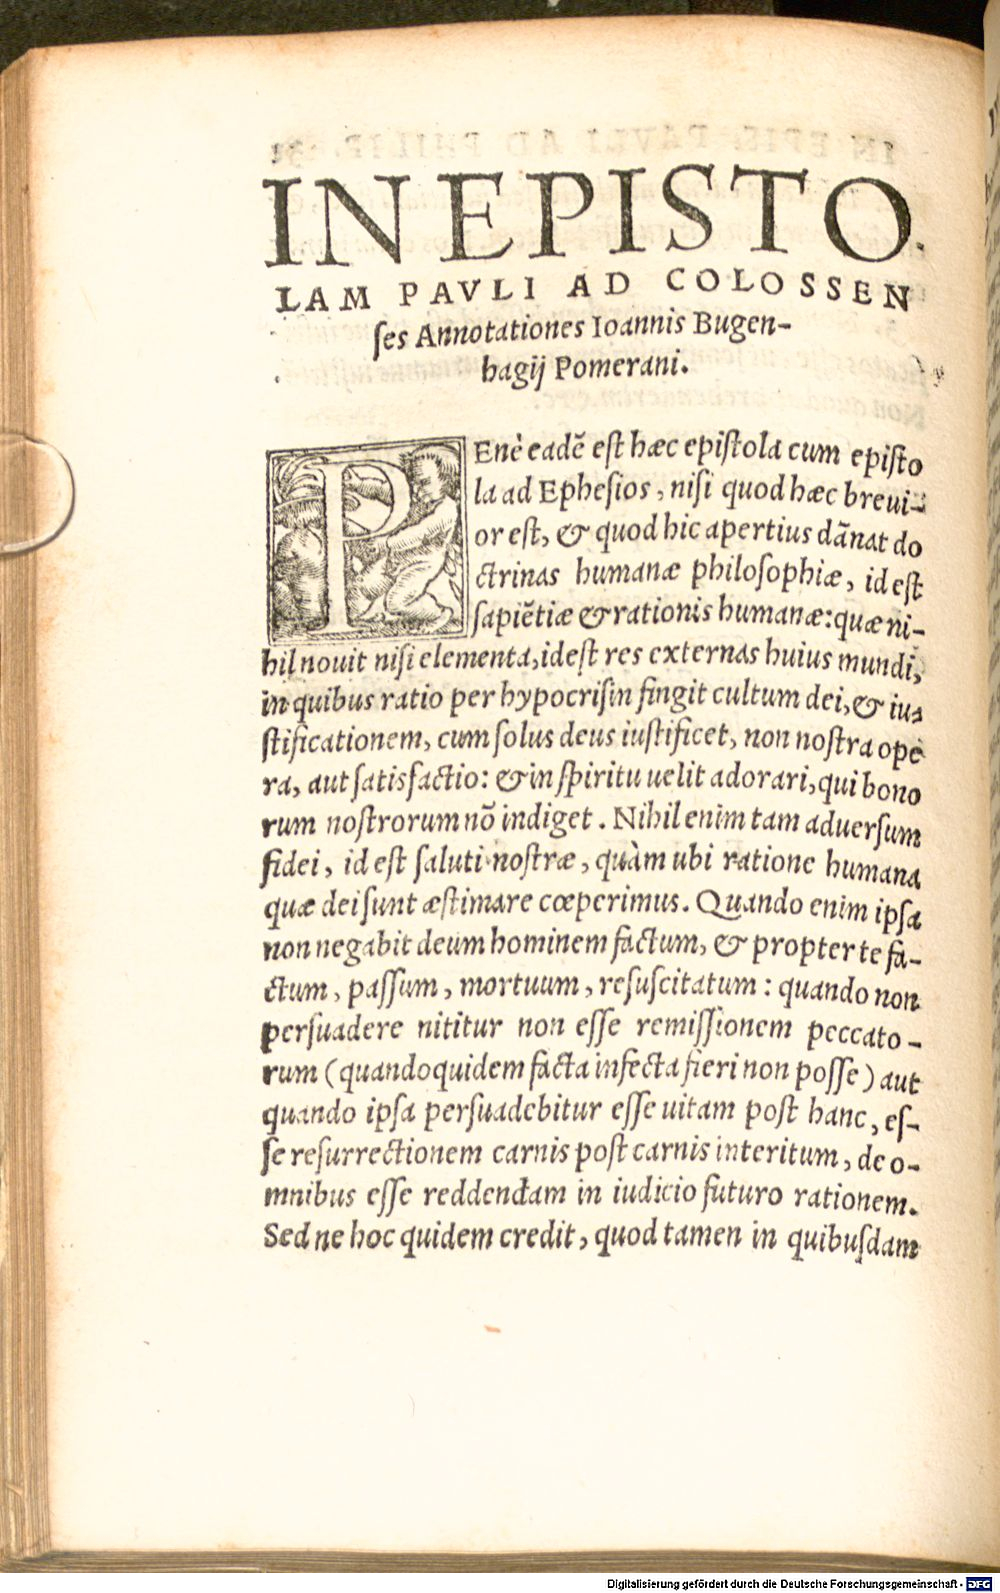 IN EPISTO
LAM PAVLI AD COLOSSEN
ſes Annotationes Ioannis Bugen-
hagij Pomerani.
PEnè eadē eſt hæc epiſtola cum epiſto
la ad Epheſios, niſi quod hæc breui-
or eſt, & quod hic apertius dānat do
ctrinas humanæ philoſophiæ, id eſt
ſapiētiæ & rationis humanæ: quæ ni-
hil nouit niſi elementa, id eſt res externas huius mundi,
in quibus ratio per hypocriſin fingit cultum dei, & iu-
ſtificationem, cum ſolus deus iuſtificet, non noſtra ope
ra, aut ſatisfactio: & in ſpiritu uelit adorari, qui bono
rum noſtrorum nō indiget. Nihil enim tam aduerſum
fidei, id eſt ſaluti noſtræ, quàm ubi ratione humana
quæ dei ſunt æſtimare cœperimus. Quando enim ipſa
non negabit deum hominem factum, & propter te fa-
ctum, paſſum, mortuum, reſuſcitatum: quando non
perſuadere nititur non eſſe remiſſionem peccato-
rum (quandoquidem facta infecta fieri non poſſe) aut
quando ipſa perſuadebitur eſſe uitam poſt hanc, eſ-
ſe reſurrectionem carnis poſt carnis interitum, de o-
mnibus eſſe reddendam in iudicio futuro rationem.
Sed ne hoc quidem credit, quod tamen in quibuſdam
Digitalisierung gefördert durch die Deutsche Forschungsgemeinschaft - DFG